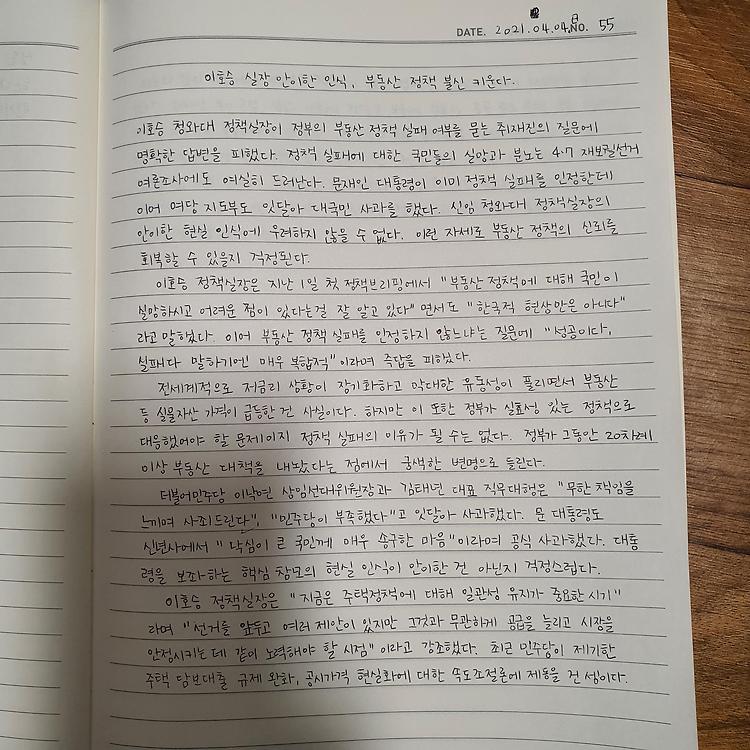 DATE. 2021.04.04.日 NO. 55
이호승 실장 안이한 인식, 부동산 정책 불신 키운다.
이호승 청와대 정책실장이 정부의 부동산 정책 실패 여부를 묻는 취재진의 질문에
명확한 답변을 피했다. 정책 실패에 대한 국민들의 실망과 분노는 4·7 재보궐선거
여론조사에도 여실히 드러난다. 문재인 대통령이 이미 정책 실패를 인정한데
이어 여당 지도부도 잇달아 대국민 사과를 했다. 신임 청와대 정책실장의
안이한 현실 인식에 우려하지 않을 수 없다. 이런 자세로 부동산 정책의 신뢰를
회복할 수 있을지 걱정된다.
이호승 정책실장은 지난 1일 첫 정책브리핑에서 "부동산 정책에 대해 국민이
실망하시고 어려운 점이 있다는걸 잘 알고 있다" 면서도 "한국적 현상만은 아니다"
라고 말했다. 이어 부동산 정책 실패를 인정하지 않느냐는 질문에 "성공이다,
실패다 말하기엔 매우 복합적"이라며 즉답을 피했다.
전세계적으로 저금리 상황이 장기화하고 막대한 유동성이 풀리면서 부동산
등 실물자산 가격이 급등한 건 사실이다. 하지만 이 또한 정부가 실효성 있는 정책으로
대응했어야 할 문제이지 정책 실패의 이유가 될 수는 없다. 정부가 그동안 20차례
이상 부동산 대책을 내놨다는 점에서 궁색한 변명으로 들린다.
더불어민주당 이낙연 상임선대위원장과 김태년 대표 직무대행은 "무한 책임을
느끼며 사죄드린다", "민주당이 부족했다"고 잇달아 사과했다. 문 대통령도
신년사에서 "낙심이 큰 국민께 매우 송구한 마음"이라며 공식 사과했다. 대통
령을 보좌하는 핵심 참모의 현실 인식이 안이한 건 아닌지 걱정스럽다.
이호승 정책실장은 "지금은 주택정책에 대해 일관성 유지가 중요한 시기"
라며 "선거를 앞두고 여러 제안이 있지만 그것과 무관하게 공급을 늘리고 시장을
안정시키는 데 같이 노력해야 할 시점"이라고 강조했다. 최근 민주당이 제기한
주택 담보대출 규제 완화, 공시가격 현실화에 대한 속도조절론에 제동을 건 셈이다.